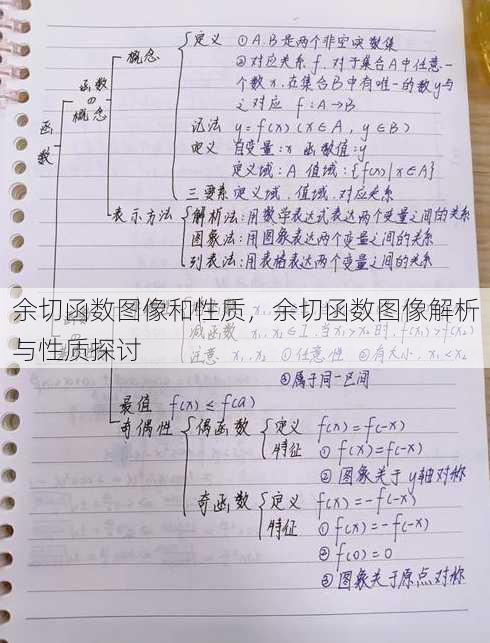 定义 ①A.B是两个非空实数集
概念
②对应关系f.对于集合A中任意一
函数的概念
个数x.在集合B中有唯一的数y与
之对应 f:A→B
函数
记法 y=f(x)(x∈A, y∈B)
定义 自变量:x 函数值:y
定义域:A 值域:{f(x)|x∈A}
三要素 定义域.值域.对应关系
表示方法 解析法:用数学表达式表达两个变量之间的关系
图象法:用图象表达两个变量之间的关系
列表法:用表格表达两个变量之间的关系
余切函数图像和性质，余切函数图像解析
与性质探讨
减函数 x₁.x₂∈I.当x₁>x₂时.
注意 x₁.x₂ ①任意性 ②有大小.x₁<x₂
③属于同一区间
最值 f(x)≤f(a)
奇偶性 偶函数 定义 f(x)=f(-x)
特征 ①f(x)=f(-x)
②图象关于y轴对称
奇函数 定义 f(x)=-f(-x)
特征 ①f(x)=-f(-x)
②f(0)=0
③图象关于原点对称